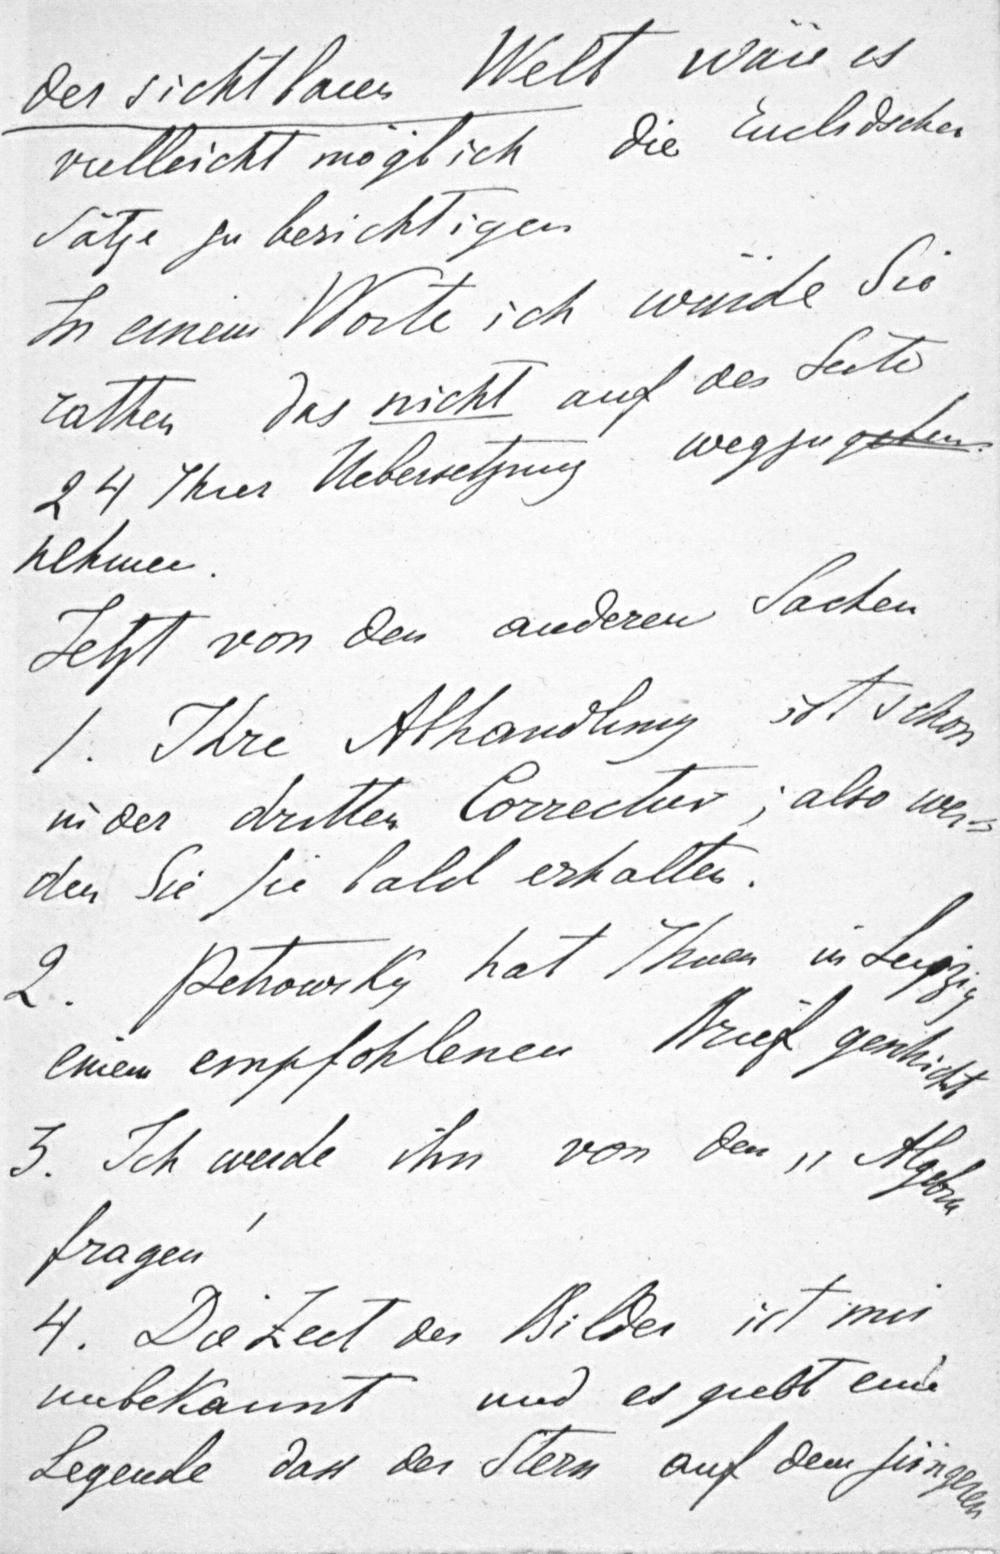 der sichtbaren Welt wäre es
vielleicht möglich die Euclidschen
Sätze zu berichtigen
In einem Worte ich würde Sie
rathen das nicht auf der Seite
24 Ihrer Uebersetzung wegzugeben
nehmen.
Jetzt von den anderen Sachen
1. Ihre Abhandlung ist schon
in der dritten Correctur; also wer=
den Sie sie bald erhalten.
2. Petrowsky hat Ihnen in Leipzig
einen empfohlenen Brief geschickt
3. Ich werde ihn von den „ Algebra
fragen
4. Die Zeit der Bilder ist mir
unbekannt und es giebt eine
Legende dass der Stern auf dem jüngeren